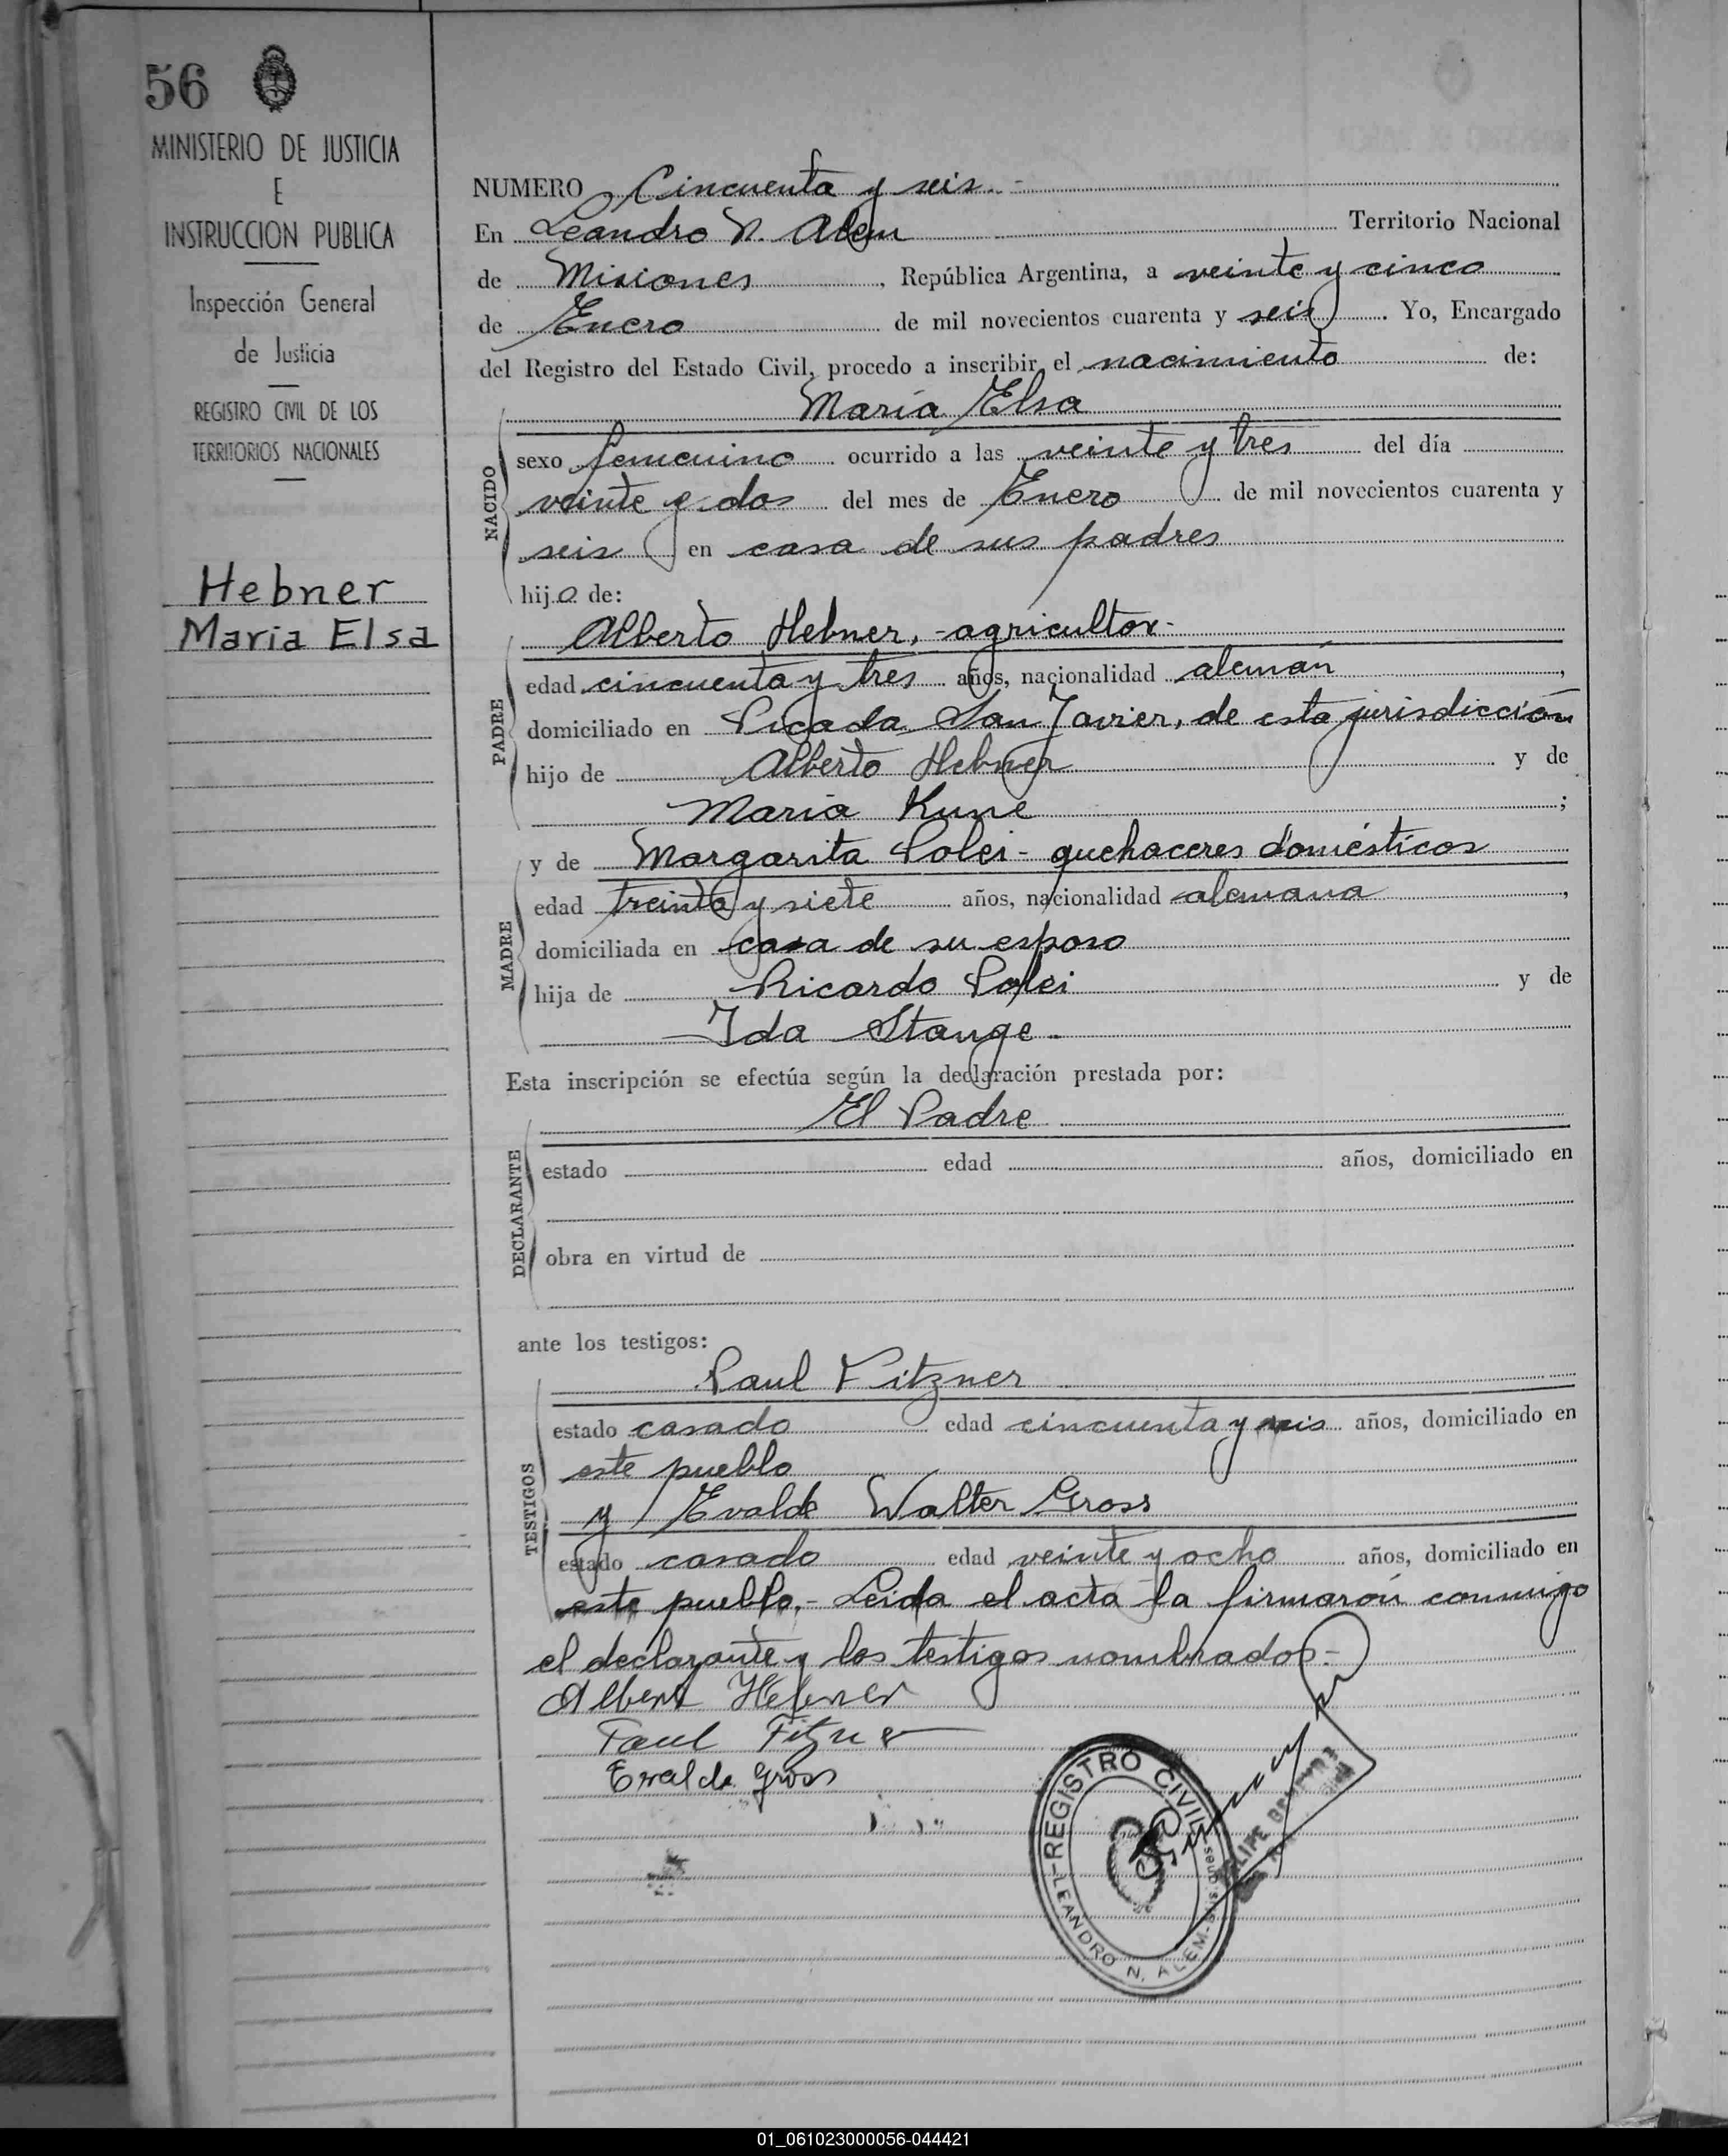 56
MINISTERIO DE JUSTICIA
E
INSTRUCCION PUBLICA
Inspección General
de Justicia
REGISTRO CIVIL DE LOS
TERRITORIOS NACIONALES
Hebner
Maria Elsa
NUMERO Cincuenta y seis.-
En Leandro N. Alem Territorio Nacional
de Misiones, República Argentina, a veinte y cinco
de Enero de mil novecientos cuarenta y seis. Yo, Encargado
del Registro del Estado Civil, procedo a inscribir el nacimiento de:
NACIDO
María Elsa
sexo femenino ocurrido a las veinte y tres del día
veinte y dos del mes de Enero de mil novecientos cuarenta y
seis en casa de sus padres
hija de:
PADRE
Alberto Hebner.-agricultor-
edad cincuenta y tres años, nacionalidad alemán,
domiciliado en Picada San Javier, de esta jurisdicción
hijo de Alberto Hebner y de
Maria Kune;
MADRE
y de Margarita Polei- quehaceres domésticos
edad treinta y siete años, nacionalidad alemana,
domiciliada en casa de su esposo
hija de Ricardo Polei y de
Ida Stange.
Esta inscripción se efectúa según la declaración prestada por:
DECLARANTE
El Padre
estado edad años, domiciliado en
obra en virtud de
ante los testigos:
TESTIGOS
Paul Fitzner
estado casado edad cincuenta y seis años, domiciliado en
este pueblo
y Evalde Walter Gross
estado casado edad veinte y ocho años, domiciliado en
este pueblo.- Leida el acta la firmaron conmigo
el declarante y los testigos nombrados.-
Albert Hebner
Paul Fitzner
Evalde Gross
REGISTRO CIVIL
LEANDRO N. ALEM-Misiones
01_061023000056-044421